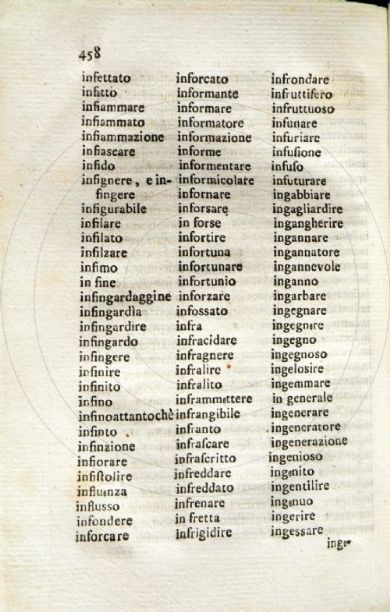 458
infettato
infetto
infiammare
infiammato
infiammazione
infiaſcare
infido
infignere , e in-
fingere
infigurabile
infilare
infilato
infilzare
infimo
in fine
infingardaggine
infingardìa
infingardire
infingardo
infingere
infinire
infinito
infino
infinoattantochè
infinto
infinzione
infiorare
infiſtolire
influenza
influsso
infondere
inforcare
inforcato
informante
informare
informatore
informazione
informe
informentare
informicolare
infornare
inforsare
in forse
infortire
infortuna
infortunare
infortunio
inforzare
infossato
infra
infracidare
infragnere
infralire
infralito
inframmettere
infrangibile
infranto
infraſcare
infraſcritto
infreddare
infreddato
infrenare
in fretta
infrigidire
infrondare
infruttifero
infruttuoso
infunare
infuriare
infuſione
infuſo
infuturare
ingabbiare
ingagliardire
ingangherire
ingannare
ingannatore
ingannevole
inganno
ingarbare
ingegnare
ingegnere
ingegno
ingegnoso
ingelosire
ingemmare
in generale
ingenerare
ingeneratore
ingenerazione
ingenioso
ingenito
ingentilire
ingenuo
ingerire
ingessare
inge-